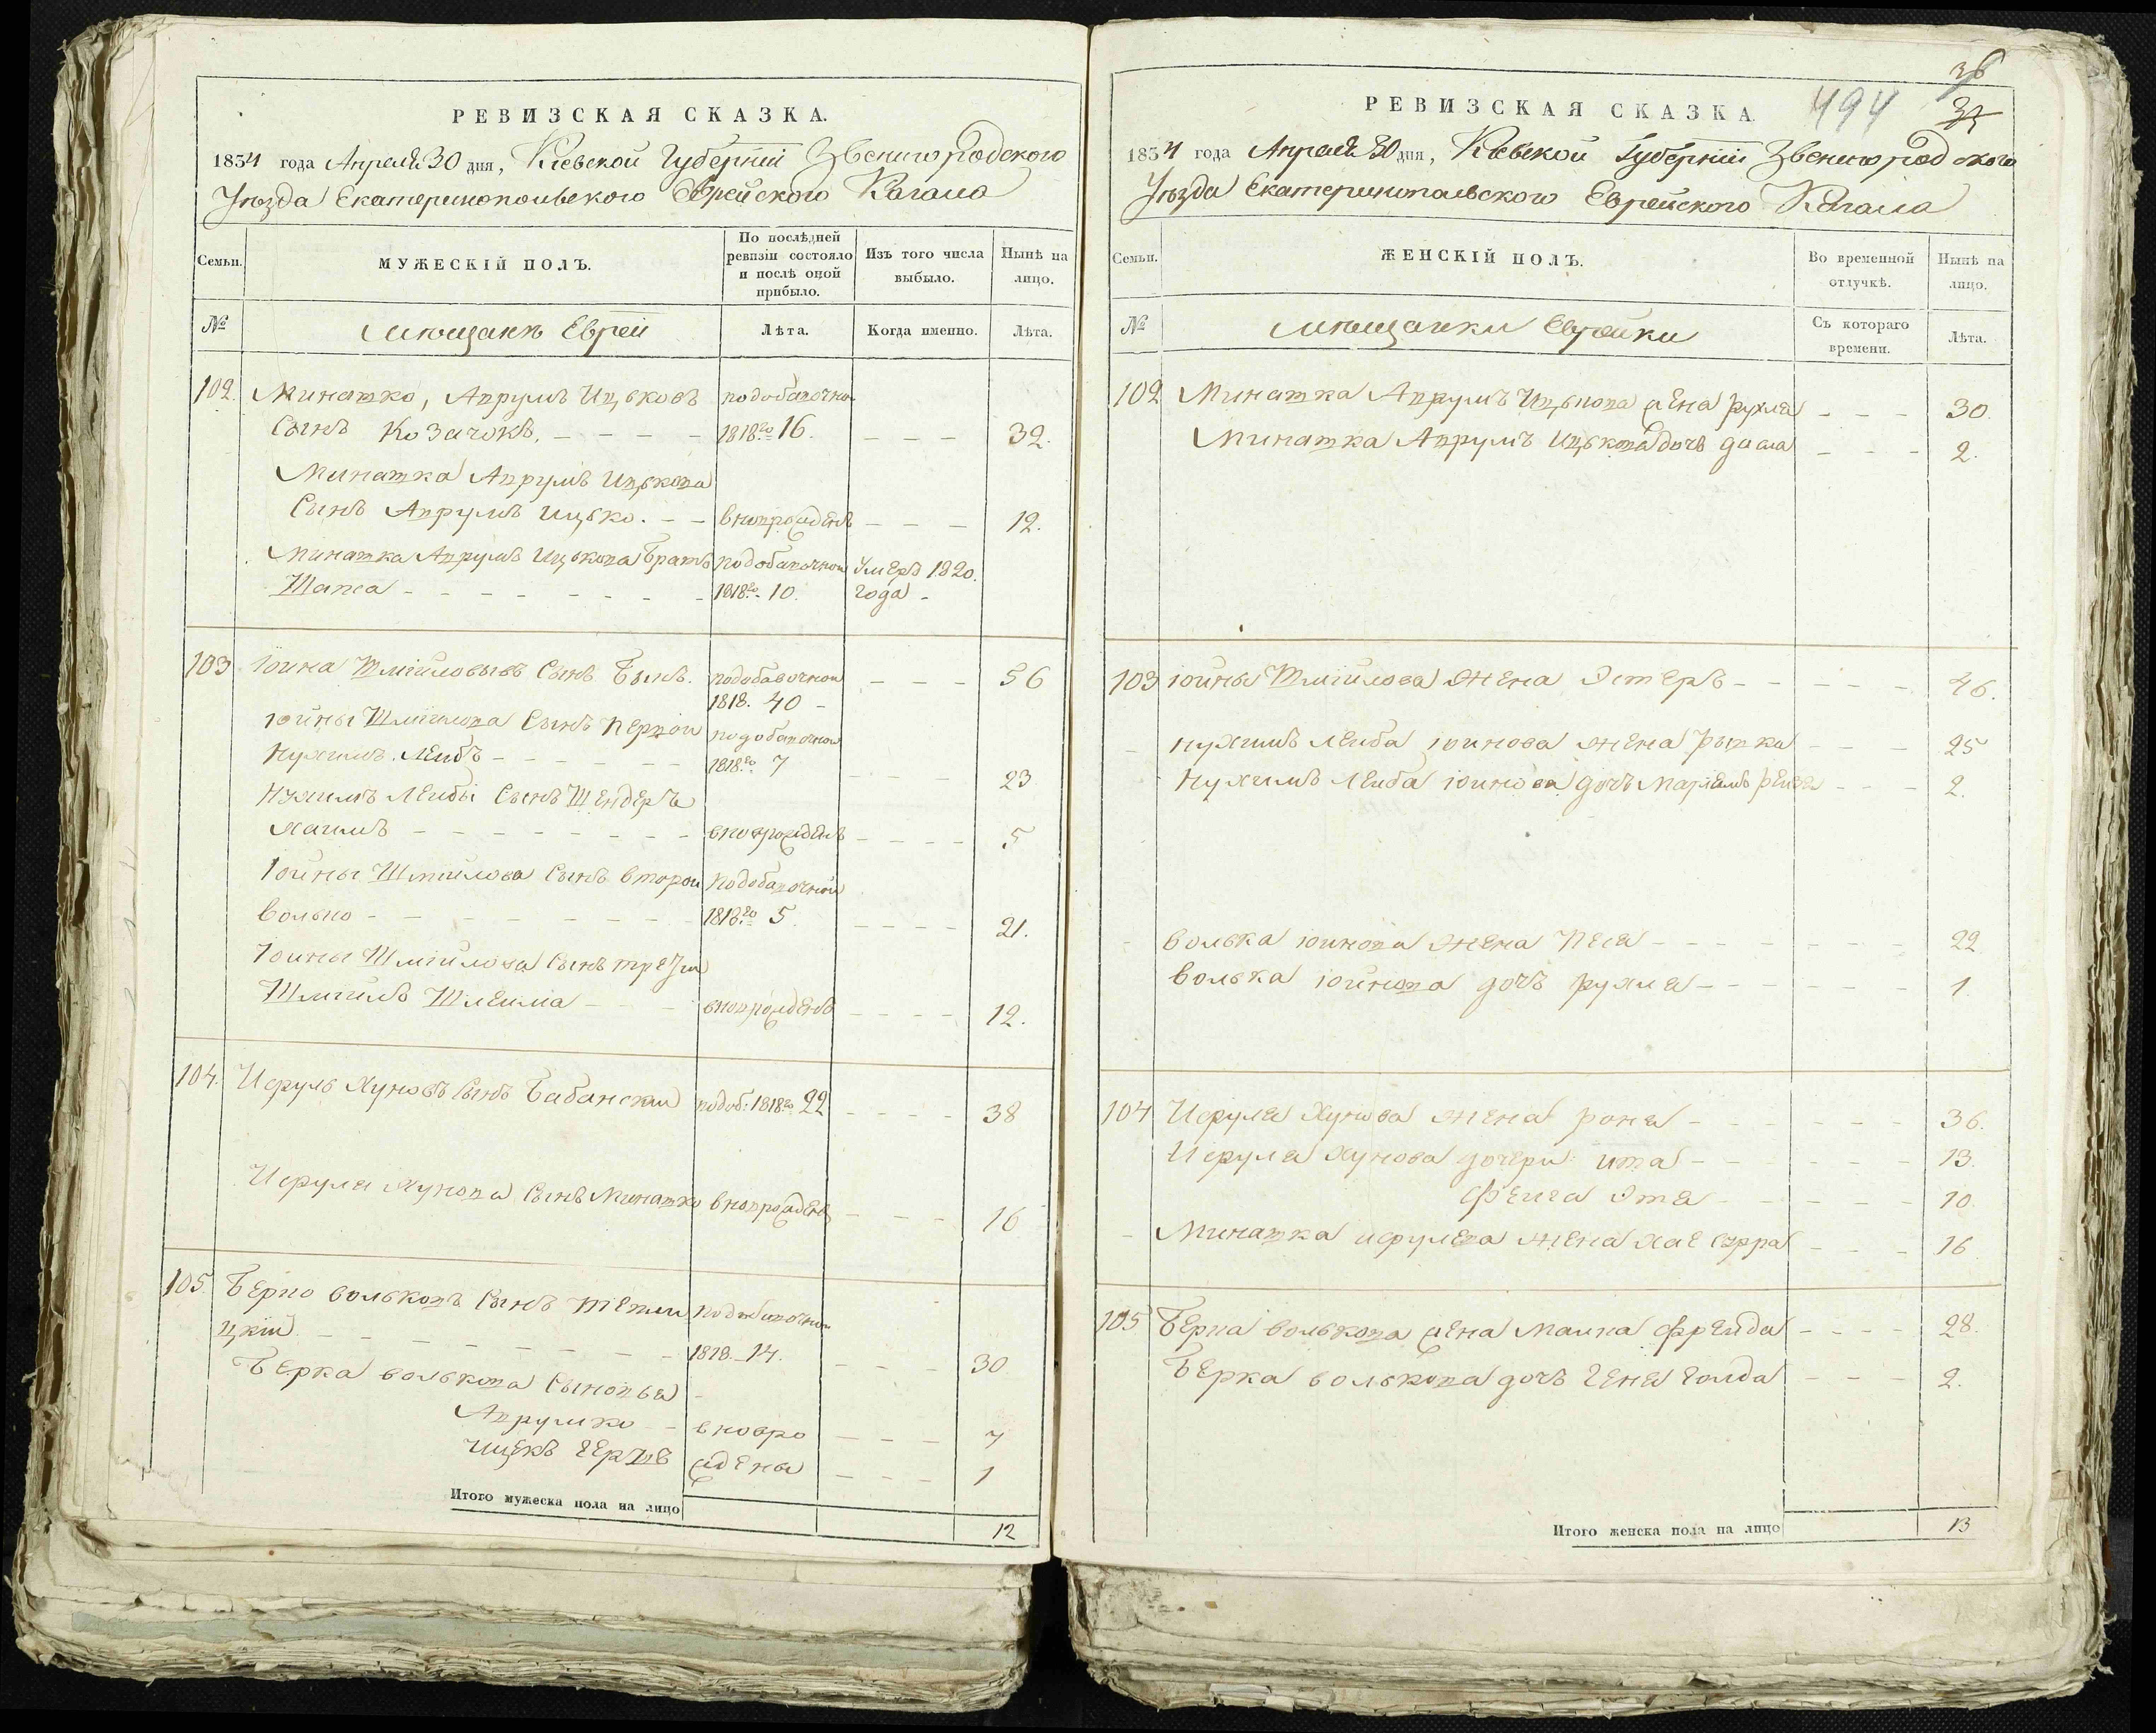 РЕВИЗСКАЯ СКАЗКА.
1834 года Апреля 30 дня, Кіевской Губерніи Звенигородского
Уѣзда Екатеринопольского Еврейского Кагала
Семьи.
МУЖЕСКІЙ ПОЛЪ.
По послѣдней ревизіи состояло и послѣ оной прибыло.
Изъ того числа выбыло.
Нынѣ на лицо.
№
мещанъ Еврей
Лѣта.
Когда именно.
Лѣта.
102. Минашко, Аврумъ Ицьковъ подобавочной
Сынъ Козачокъ, 1818го 16. 32.
Минашка Аврумъ Ицькова
Сынъ Аврумъ Ицько. вноврожденъ 12.
Минашка Аврумъ Ицькова братъ подобавочной Умеръ 1820.
1818го 10. года
103 Іойна Шміиловывъ Сынъ подобавочной 56
1818. 40
Іойны Шміилова Сынъ первой подобавочной
Нухимъ Лейбъ 1818го 7 23
Нухимъ Лейбы Сынъ Шендеръ
Хаимъ вноврожденъ 5
Іойны Шміилова Сынъ второй подобавочной
Волько 1818го 5 21.
Іойны Шміилова Сынъ третій
Шміилъ Шлейма вноврожденъ 12.
104. Исруль Хуновъ Сынъ Бабанский подоб: 1818го 22 38
Исруля Хунова Сынъ Минашко вноврожденъ 16
105. Берко Вольковъ Сынъ подобавочной
цкій 1818. 14. 30
Берка Волькова Сыновья
Аврумко вновро 7
Ицекъ Гершъ жденны 1
Итого мужеска пола на лицо 12
36
494
35
РЕВИЗСКАЯ СКАЗКА.
1834 года Апреля 30 дня, Кіевской Губерніи Звенигородского
Уѣзда Екатеринопольского Еврейского Кагала
Семьи.
ЖЕНСКІЙ ПОЛЪ.
Во временной отлучкѣ.
Нынѣ на лицо.
№
мещанки Еврейки
Съ котораго времени.
Лѣта.
102 Минашка Аврумъ Ицькова жена Рухля 30.
Минашка Аврумъ Ицькова дочь 2.
103 Іойны Шміилова жена Эстеръ 46.
Нухимъ Лейба Іойнова жена Рывка 25
Нухимъ Лейба Іойнова дочъ Маріемъ Рейза 2.
Волька Іойнова жена Песя 22
Волька Іойнова дочъ Рухля 1
104 Исруля Хунова жена Роня 36.
Исруля Хунова дочери: Ита 13.
Фейга Этя 10
Минашка Исрулева жена Хае Сурра 16
105 Берка Волькова жена Малка Фрейда 28.
Берка Волькова дочъ Геня Голда 2.
Итого женска пола на лицо 13